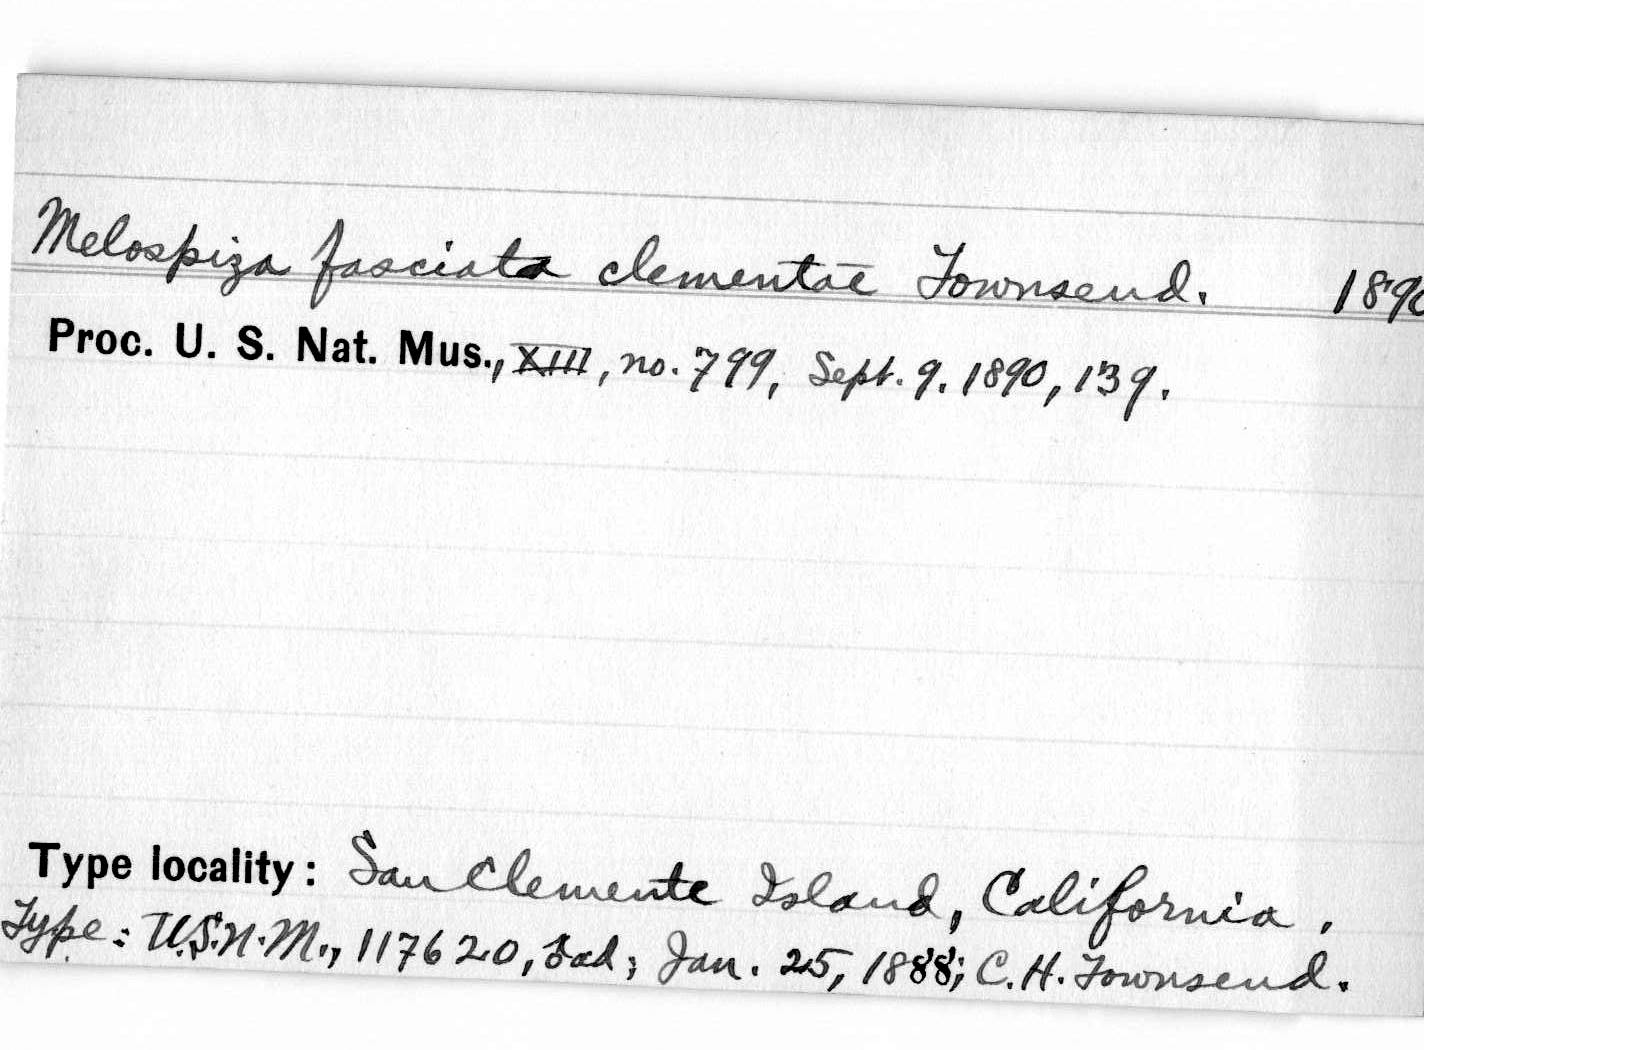 Melospiza fasciata clementae Townsend. 1890
Proc. U. S. Nat. Mus., XIII, no. 799, Sept. 9. 1890, 139.
Type locality: San Clemente Island, California.
Type: U.S.N.M., 117620, ad; Jan. 25, 1888; C. H. Townsend.